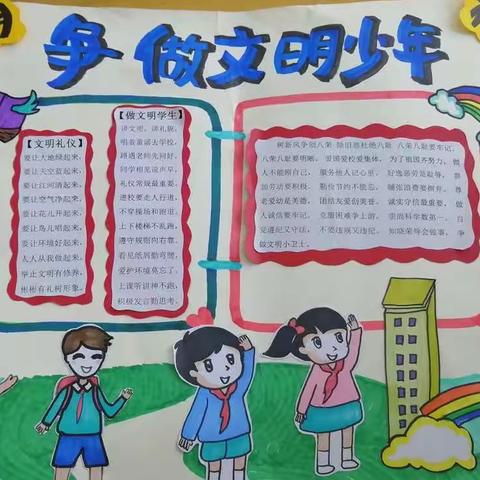 争做文明少年
【文明礼仪】
要让大地绿起来，
要让天空蓝起来，
要让江河清起来，
要让空气净起来，
要让花儿开起来，
要让鸟儿唱起来，
要让环境好起来，
人人从我做起来，
举止文明有修养，
彬彬有礼树形象。
【做文明学生】
讲文明，讲礼貌，
唱着童谣去学校，
路遇老师先问好，
同学相见说声早，
礼仪常规最重要，
进校要走人行道，
不穿操场和跑道，
上下楼梯不乱跑，
遵守规则向右靠，
看见纸屑勤弯腰，
爱护环境莫忘了，
上课听讲神不跑，
积极发言勤思考。
树新风争创八荣 除旧恶杜绝八耻 八荣八耻要牢记，
八荣八耻要明晰。 爱国爱校爱集体， 为了祖国齐努力。
人不能顾自己， 服务他人记心里。
加劳动要积极， 勤俭节约不能忘， 铺张浪费要摒弃。
老爱幼是美德， 团结友爱创美善。 诚实守信最重要，
人诚信要牢记， 克服困难争上游， 崇尚科学数第一。
党遵纪又守法， 不要违规又违纪。 知晓荣辱会做事，
做文明小卫士。